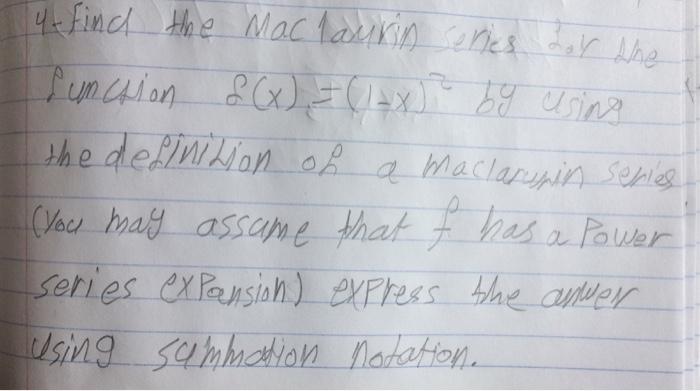 4- Find the Maclaurin series for the
function f(x) = (1-x)² by using
the definition of a maclarurin series
(You may assume that f has a Power
series expansion) express the answer
using summation notation.